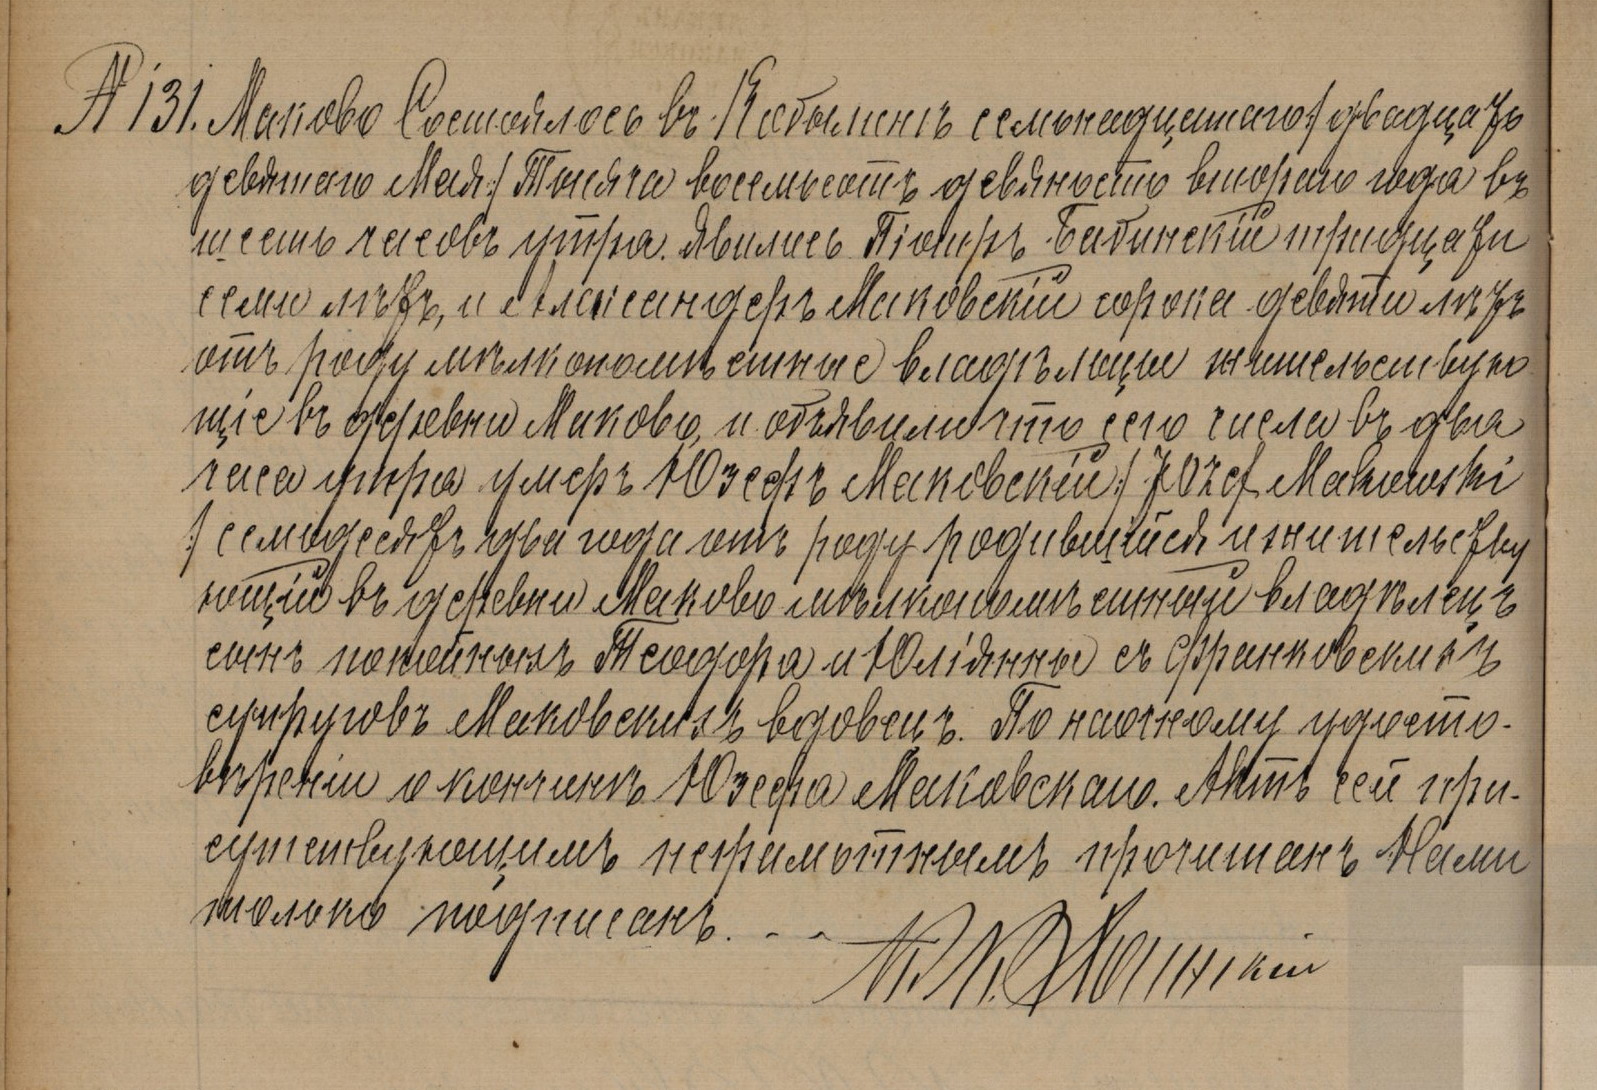 № 131. Маково Состоялось въ Кобылинѣ семьнадцатаго /:двадцать
девятаго Мая:/ Тысяча восемьсотъ девяность втораго года въ
шесть часовъ утра. Явились Піотръ Бабинскій тридцати
семи лѣтъ, и Александеръ Маковскій сорока девяти лѣтъ
отъ роду мѣлкопомѣстные владѣльцы жительствую
щіе въ деревни Маково, и объявили что сего числа въ два
часа утра умеръ Юзефъ Маковскій /: Józef Makowski
:/ семьдесятъ два года отъ роду родившійся и жительству
ющій въ деревни Маково мѣлкопомѣстный владѣлецъ
сынъ покойныхъ Теодора и Юліянны съ Франковскихъ
супруговъ Маковскихъ вдовецъ. По наочному удосто-
вѣреніи о кончинѣ Юзефа Маковскаго. Актъ сей при-
сутствующимъ неграмотнымъ прочитанъ Нами
только подписанъ.